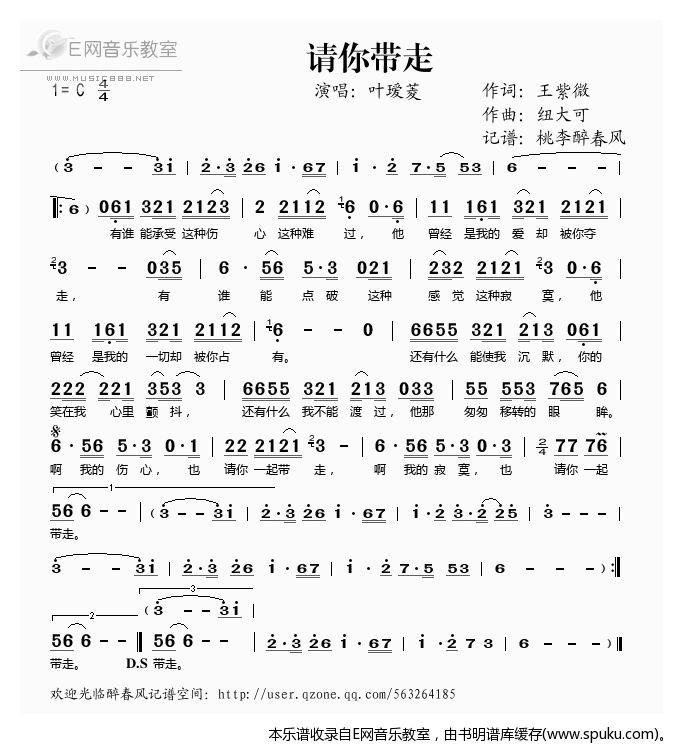 E网音乐教室
WWW.MUSIC888.NET
请你带走
1= C 4/4
演唱：叶瑷菱
作词：王紫微
作曲：纽大可
记谱：桃李醉春风
（3 - - 3i | 2·3 26 i · 67 | i · 2 7·5 53 | 6 - - -
‖: 6 ） 061 321 2123 | 2 2112 6 0·6 | 11 161 321 2121 |
有谁 能承受 这种伤 心 这种难 过， 他 曾经 是我的 爱 却 被你夺
3 - - 035 | 6 · 56 5·3 021 | 232 2121 3 0·6 |
走， 有 谁 能 点 破 这种 感 觉 这种寂 寞， 他
11 161 321 2112 | 6 - - 0 | 6655 321 213 061 |
曾经 是我的 一切却 被你占 有。 还有什么 能使我 沉 默， 你的
222 221 353 3 | 6655 321 213 033 | 55 553 765 6 |
笑在我 心里 颤 抖， 还有什么 我不能 渡 过， 他那 匆匆 移转的 眼 眸。
6 · 56 5·3 0·1 | 22 2121 3 - | 6 · 56 5·3 03 | 2/4 77 76 |
啊 我的 伤 心， 也 请你 一起带 走， 啊 我的 寂 寞， 也 请你 一起
1
56 6 - - | （3 - - 3i | 2·3 26 i · 67 | i · 2 3·2 25 | 3 - - - |
带走。
3 - - 3i | 2·3 26 i · 67 | i · 2 7·5 53 | 6 - - - ） :‖
3
（3 - - 3i |
2
56 6 - - ‖ 56 6 - - | 2·3 26 i · 67 | i · 2 7 3 | 6 - - - ） ‖
带走。 D.S 带走。
欢迎光临醉春风记谱空间：http://user.qzone.qq.com/563264185
本乐谱收录自E网音乐教室，由书明谱库缓存(www.spuku.com)。